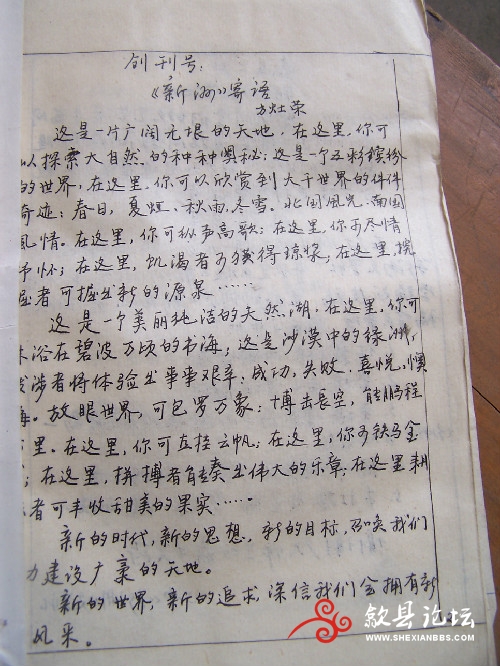 创刊号:
《新洲》寄语
方灶荣
这是一片广阔无垠的天地，在这里，你可
以探索大自然的种种奥秘；这是个五彩缤纷
的世界，在这里，你可以欣赏到大千世界的件件
奇迹：春日，夏烜、秋雨、冬雪。北国风光、南国
风情。在这里，你可纵声高歌；在这里，你可尽情
抒怀；在这里，饥渴者可获得琼浆，在这里，挖
掘者可掘出新的源泉……
这是一个美丽纯洁的天然湖，在这里，你可
沐浴在碧波万顷的书海；这是沙漠中的绿洲，
跋涉者将体验出事事艰辛：成功，失败，喜悦，懊
悔。放眼世界，可包罗万象；博击长空，能鹏程
万里。在这里，你可直挂云帆；在这里，你可铁马金
；在这里，拼搏者能奏出伟大的乐章；在这里耕
者可丰收甜美的果实……
新的时代，新的思想，新的目标，召唤我们
力建设广袤的天地。
新的世界，新的追求，深信我们会拥有新
风采。
歙县论坛
WWW.SHEXIANBBS.COM